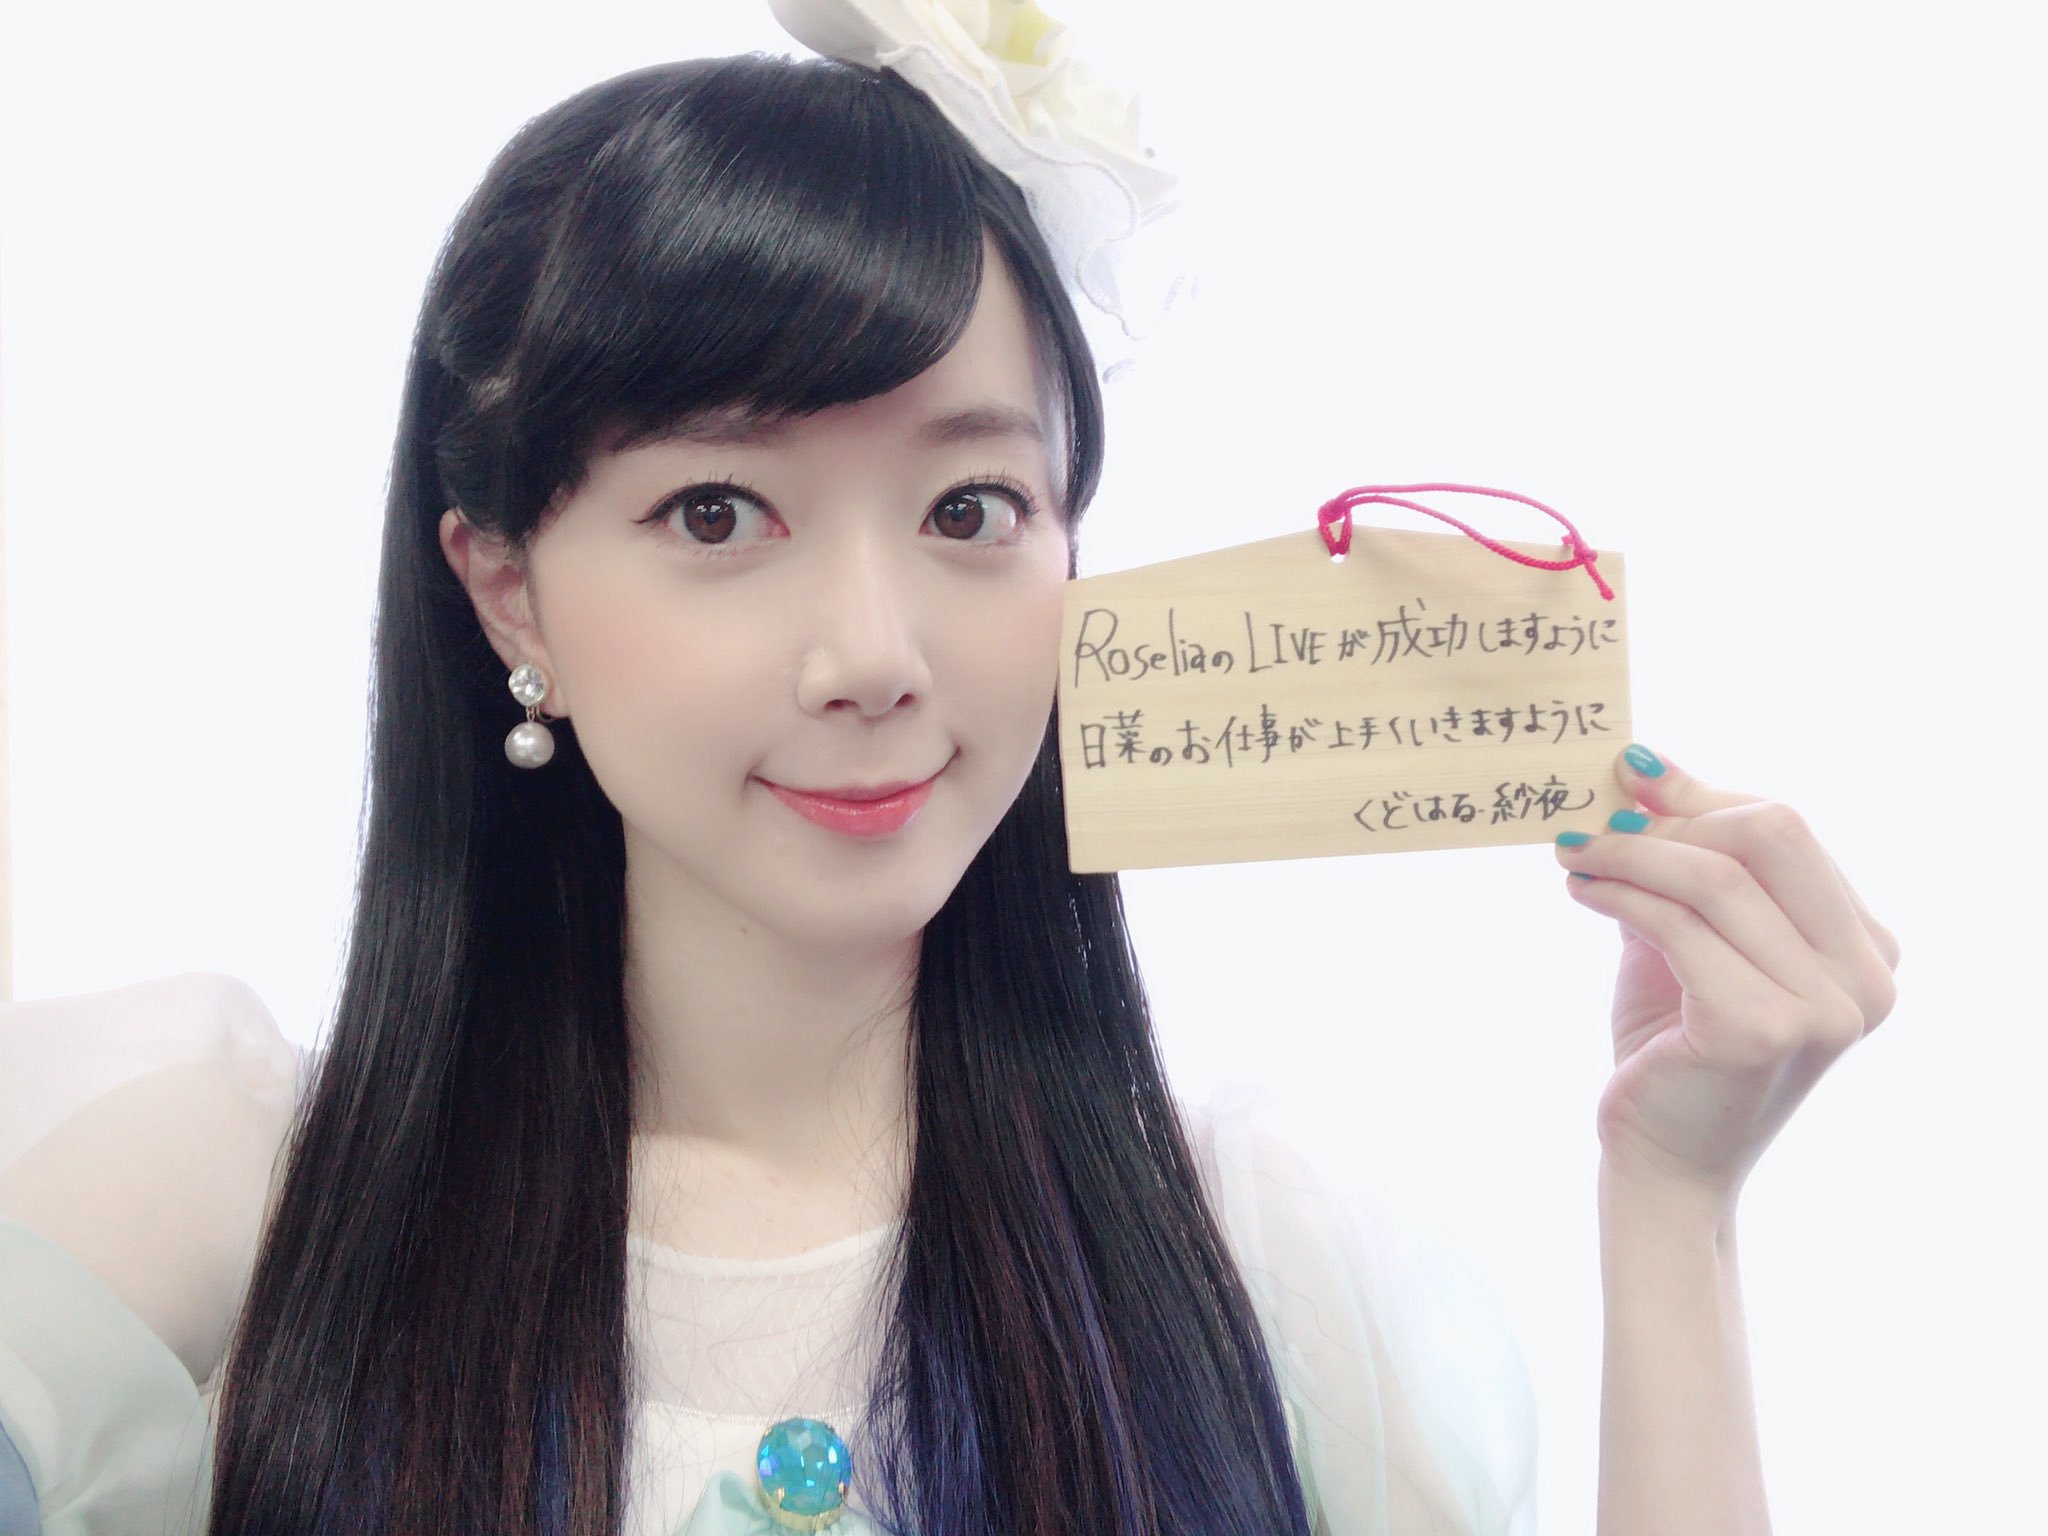 RoseliaのLIVEが成功しますように
日菜のお仕事が上手くいきますように
くどはる 紗夜